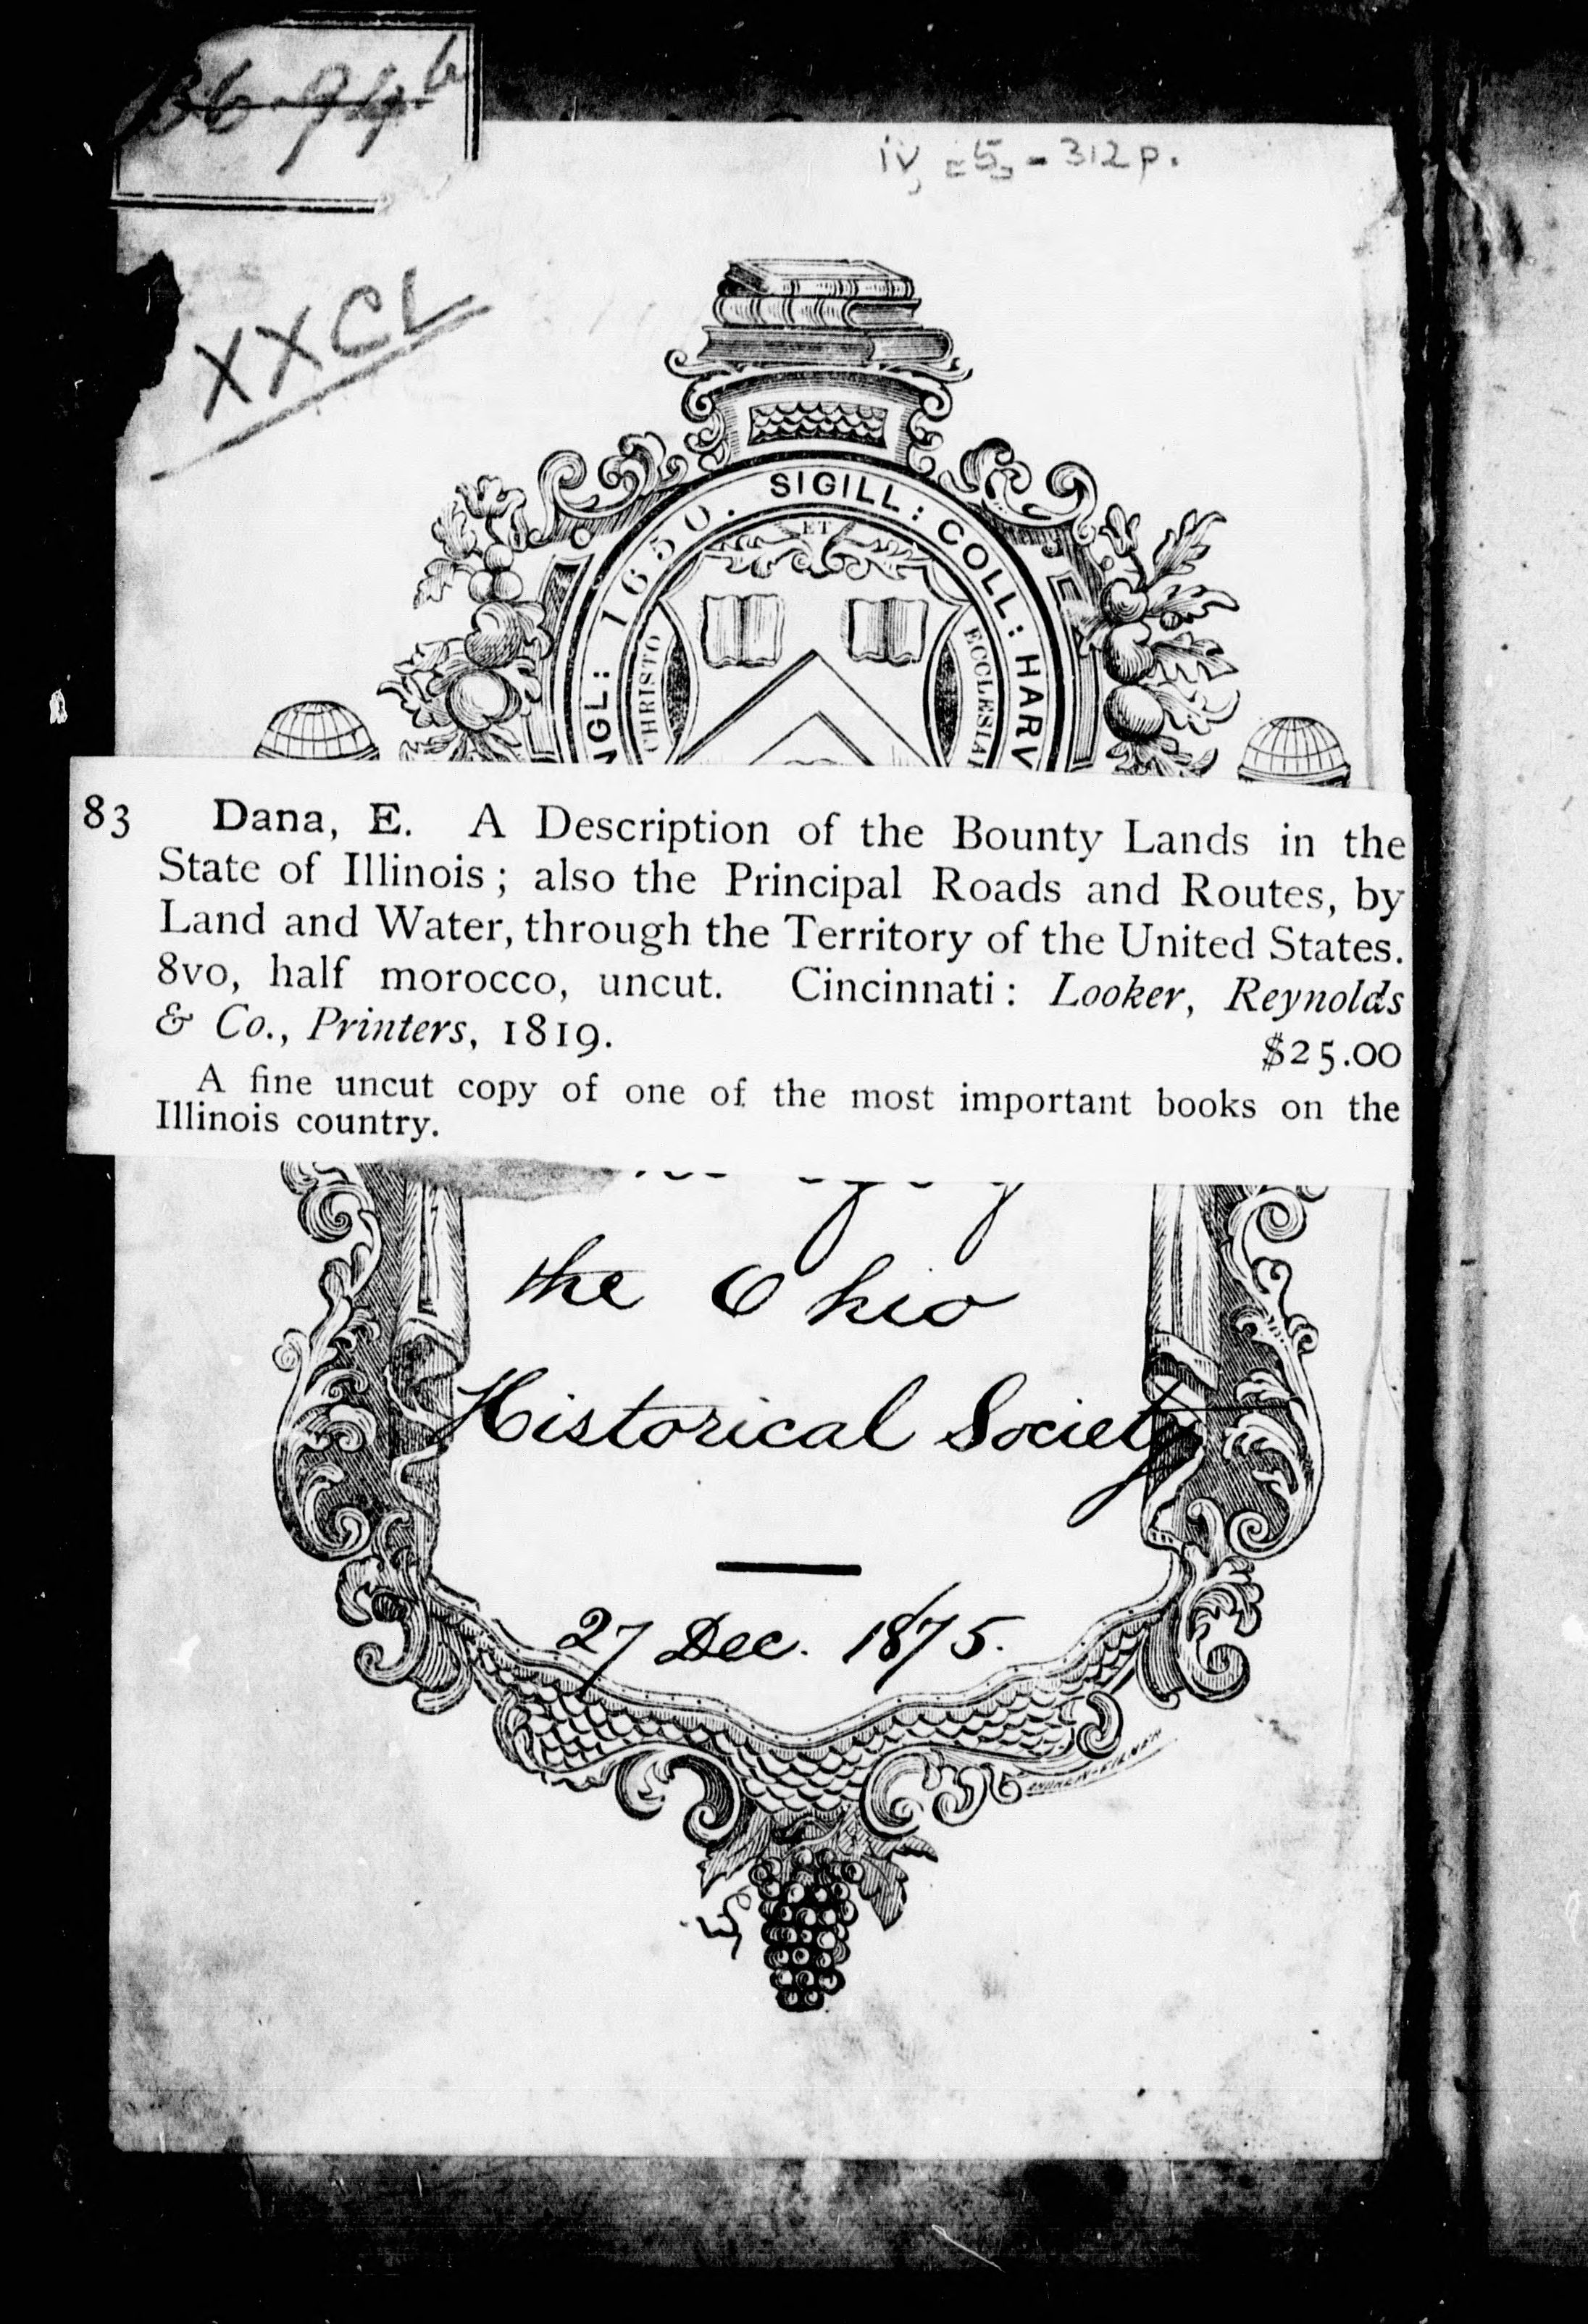 iv, =5, - 312 p.
XXCL
SIGILL: COLL: HARV
NGL: 1650.
ET
CHRISTO
ECCLESIAE
83 Dana, E. A Description of the Bounty Lands in the
State of Illinois; also the Principal Roads and Routes, by
Land and Water, through the Territory of the United States.
8vo, half morocco, uncut. Cincinnati: Looker, Reynolds
& Co., Printers, 1819.
$25.00
A fine uncut copy of one of the most important books on the
Illinois country.
the Ohio
Historical Society
27 Dec. 1875.